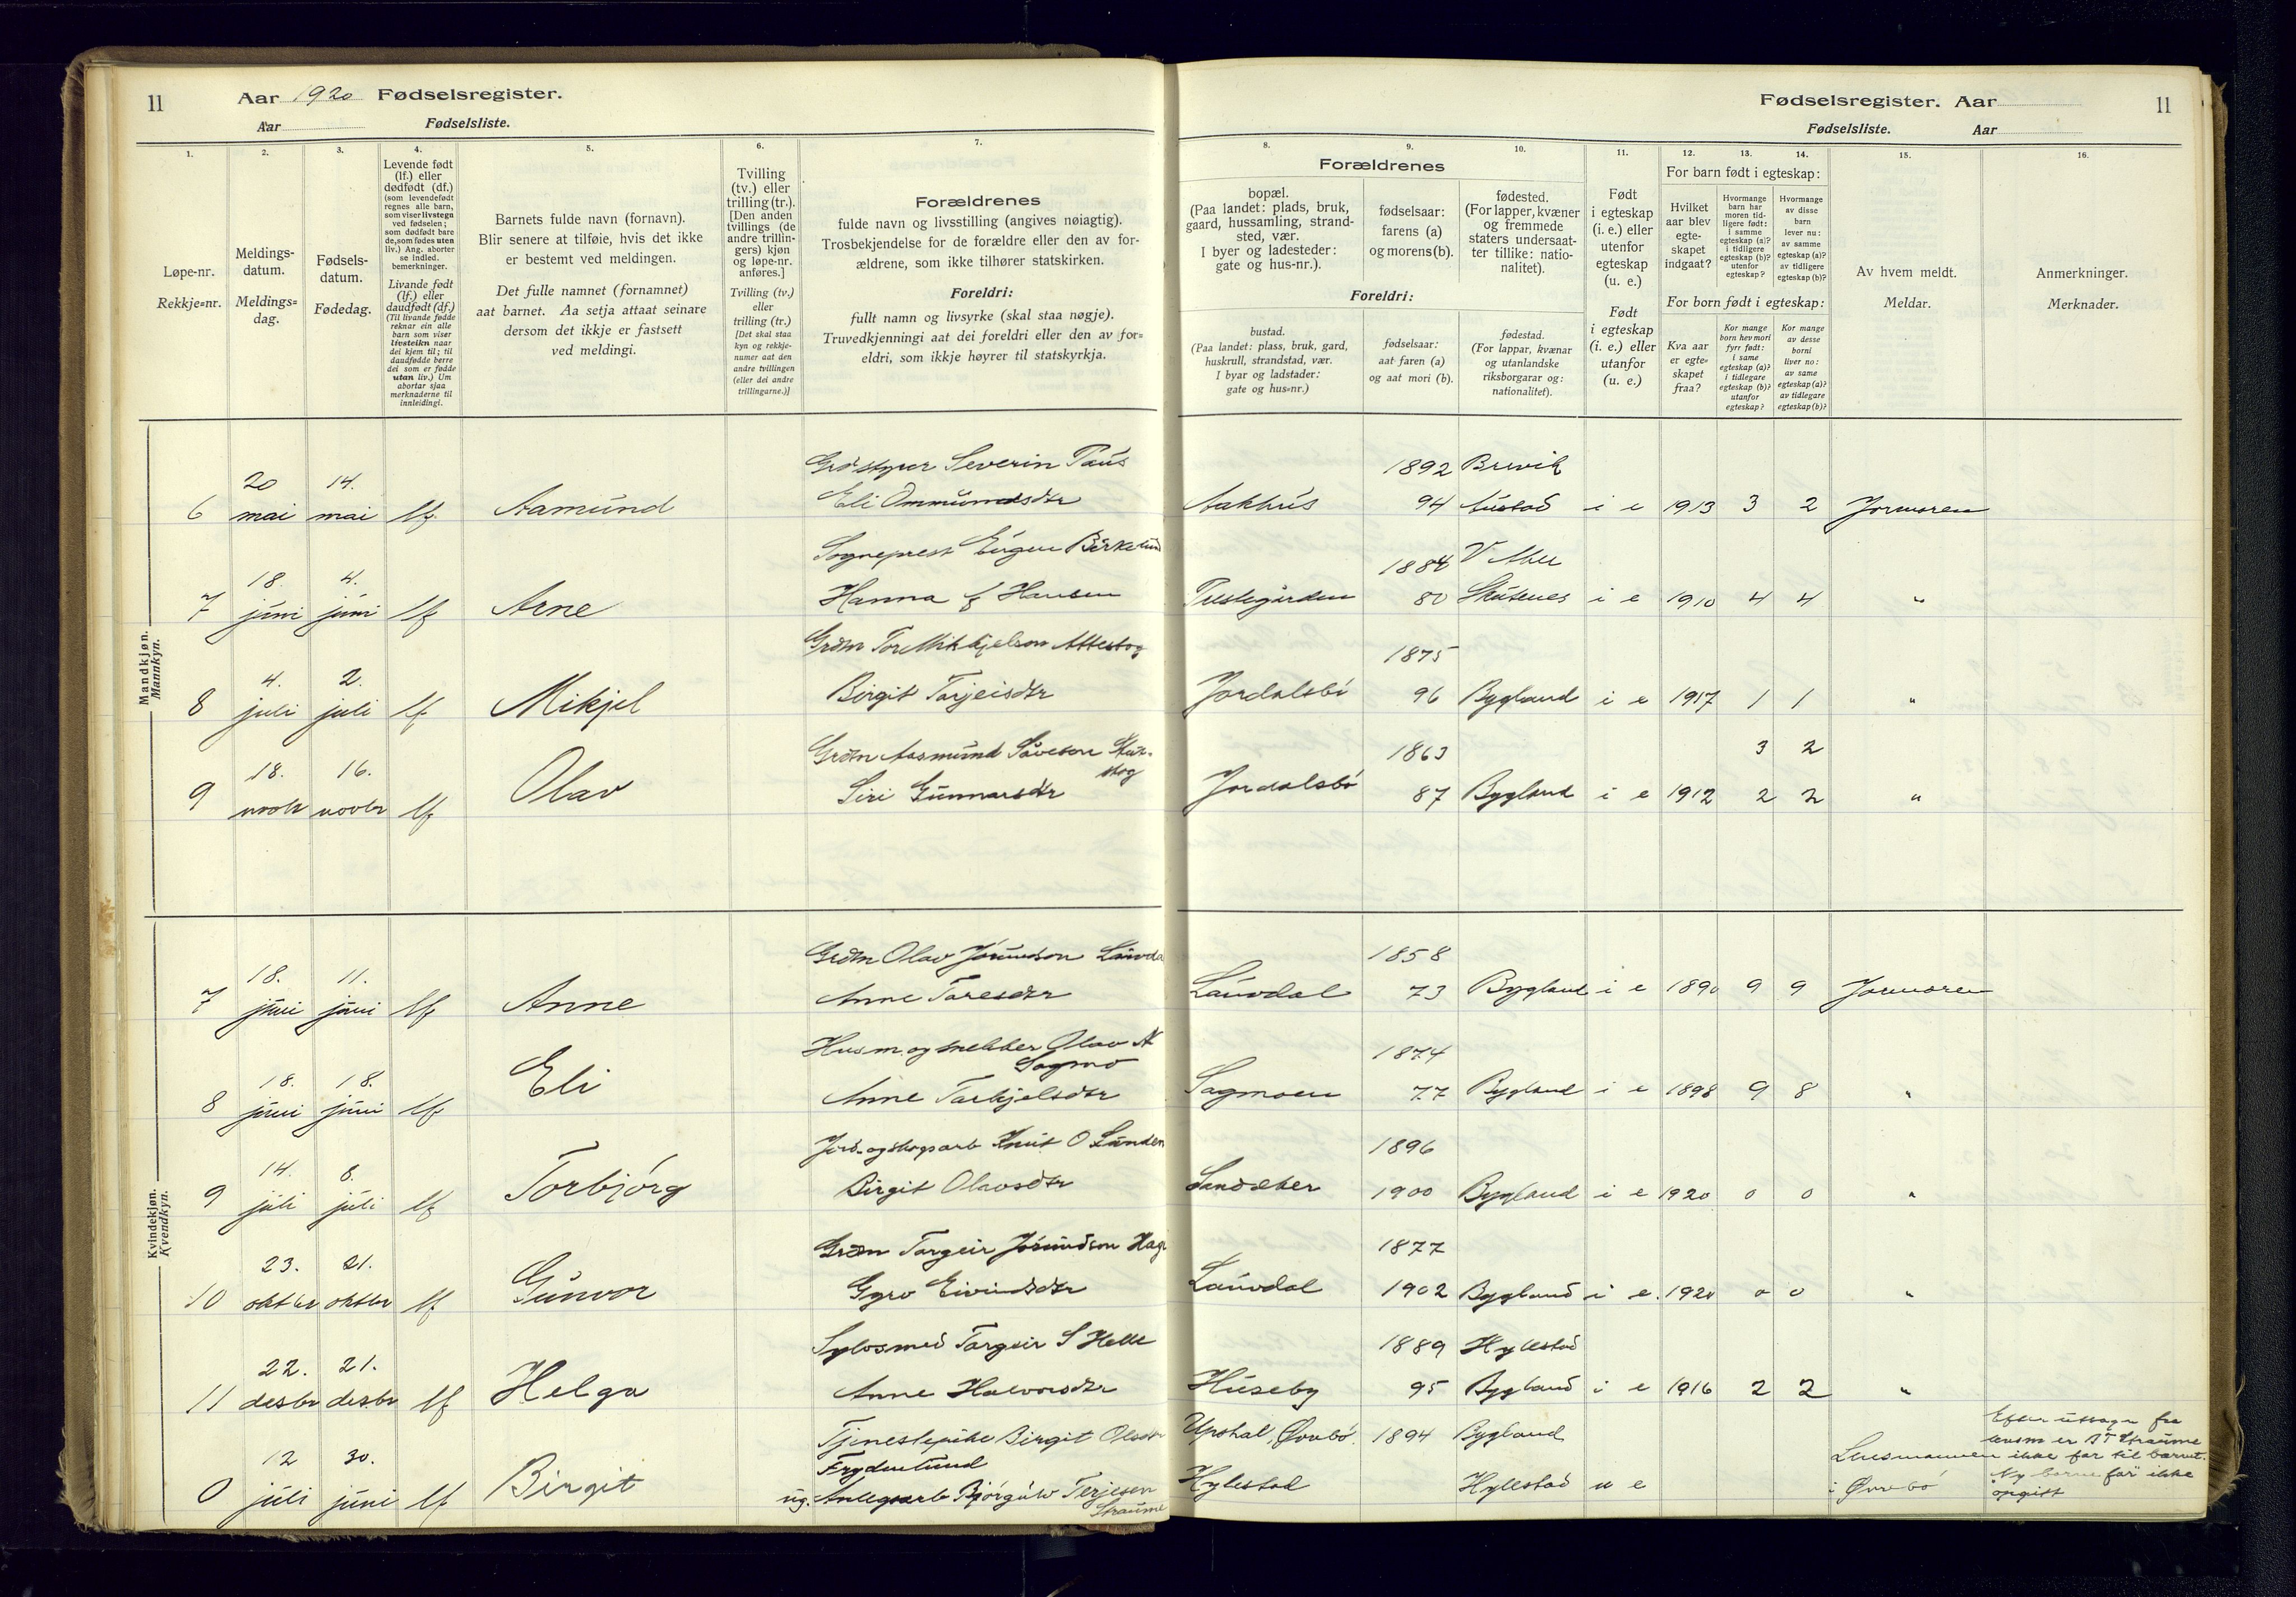 11 Aar 1920 Fødselsregister.
Aar Fødselsliste.
Fødselsregister. Aar 11
Fødselsliste. Aar
1. 2. 3. 4. 5. 6. 7. 8. 9. 10. 11. 12. 13. 14. 15. 16.
Løpe-nr.
Rekkje=nr.
Meldings-
datum.
Meldings=
dag.
Fødsels-
datum.
Fødedag.
Levende født
(lf.) eller
dødfødt (df.)
(som levendefødt
regnes alle barn,
som viser livstegn
ved fødselen;
som dødfødt bare
de, som fødes uten
liv.) Ang. aborter
se indled.
bemerkninger.
Livande født
(lf.) eller
daudfødt (df.)
(Til livande fødde
reknar ein alle
barn som viser
livsteikn naar
dei kjem til; til
daudfødde berre
dei som er fødde
utan liv.) Um
abortar sjaa
merknaderne til
innleidingi.
Barnets fulde navn (fornavn).
Blir senere at tilføie, hvis det ikke
er bestemt ved meldingen.
Det fulle namnet (fornamnet)
aat barnet. Aa setja attaat seinare
dersom det ikkje er fastsett
ved meldingi.
Tvilling
(tv.) eller
trilling (tr.).
[Den anden
tvillings (de
andre trillin-
gers) kjøn
og løpe-nr.
anføres.]
Tvilling (tv.)
eller
trilling (tr.)
[Det skal staa
kyn og rekkje-
numer aat den
andre tvillingen
(eller dei andre
trillingarne.)]
Forældrenes
fulde navn og livsstilling (angives nøiagtig).
Trosbekjendelse for de forældre eller den av for-
ældrene, som ikke tilhører statskirken.
Foreldri:
fullt namn og livsyrke (skal staa nøgje).
Truvedkjenningi aat dei foreldri eller den av for=
eldri, som ikkje høyrer til statskyrkja.
Forældrenes
bopæl.
(Paa landet: plads, bruk,
gaard, hussamling, strand-
sted, vær.
I byer og ladesteder:
gate og hus-nr.).
Foreldri:
bustad.
(Paa landet: plass, bruk, gard,
huskrull, strandstad, vær.
I byar og ladstader:
gate og hus=nr.)
fødselsaar:
farens (a)
og morens (b).
fødselsaar:
aat faren (a)
og aat mori (b).
fødested.
(For lapper, kvæner
og fremmede
staters undersaat-
ter tillike: natio-
nalitet).
fødestad.
(For lappar, kvænar
og utanlandske
riksborgarar og:
nationalitet).
Født
i egteskap
(i. e.) eller
utenfor
egteskap
(u. e.)
Født
i egteskap
(i. e.) eller
utanfor
(u. e.)
For barn født i egteskap:
Hvilket
aar blev
egte-
skapet
indgaat?
Hvormange
barn har
moren tid-
ligere født:
i samme
egteskap (a)?
i tidligere
egteskap (b)?
utenfor
egteskap?
Hvormange
av disse
barn
lever nu:
av samme
egteskap (a)?
av tidligere
egteskap (b)?
For born født i egteskap:
Kva aar
er egte-
skapet
fraa?
Kor mange
born hev mori
fyrr født:
i same
egteskap (a)?
i tidlegare
egteskap (b)?
utanfor
egteskap?
Kor mange
av desse
borni
liver no:
av same
egteskap (a)?
av tidlegare
egteskap (b)?
Av hvem meldt.
Meldar.
Anmerkninger.
Merknader.
Mandkjøn.
Mannkyn.
Severin 1892 Brevik
20 14.
6 mai mai lf. Aamund Eli Ommundsdtr Aakhus 94 Austad i e 1913 3 2 Jormoren
Sogneprest Eugen Birkelund 1884
18. 4.
7 juni juni lf Arne Hanna f Hansen 80 i e 1910 4 4 "
Grdm Tor Mikkjelson 1875
4. 2.
8 juli juli lf Mikjel Birgit Torjeisdtr Jordalsbø 96 Bygland i e 1917 1 1 "
Grdm Aasmund 1863 3 2
18. 16.
9 novbr novbr lf Olav Siri Gunnarsdtr Jordalsbø 87 Bygland i e 1912 2 2 "
Kvindekjøn.
Kvendkyn.
Grdm Olav Jorundson Lauvda 1858
18. 11.
7 juni juni lf Anne Anne Taresdtr Lauvdal 73 Bygland i e 1890 9 9 Jormoren
Husm. og snekker Olav N 1874
Sagmo
18. 18.
8 juni juni lf Eli Anne Torkjelsdtr Sagmoen 77 Bygland i e 1898 9 8 "
Jord- og skogsarb Knut O Lunden 1896
14. 8.
9 juli juli lf Torbjørg Birgit Olavsdtr Sandæker 1900 Bygland i e 1920 0 0 "
Grdm Torgeir Jorundson 1877
23. 21.
10 oktbr oktbr lf Gunvor Gyro Eivindsdtr Lauvdal 1902 Bygland i e. 1920 0 0 "
Sylvsmed Torgeir S Helle 1889 Hylestad
22. 21.
11 desbr desbr lf Helga Anne Halvorsdtr Huseby 95 Bygland i e 1916 2 2 "
Tjenestepike Birgit Olsdtr Upstal, Øvrebø. 1894 Bygland
Frydenlund
12 30.
0 juli juni lf Birgit ug. Anlegsarb Bjørgulv Terjesen Hylestad Hylestad u e Lensmannen
Straume i Øvrebø
Efter utsagn fra
lensm er B T Straume
ikke far til barnet.
Ny barnefar ikke
opgitt